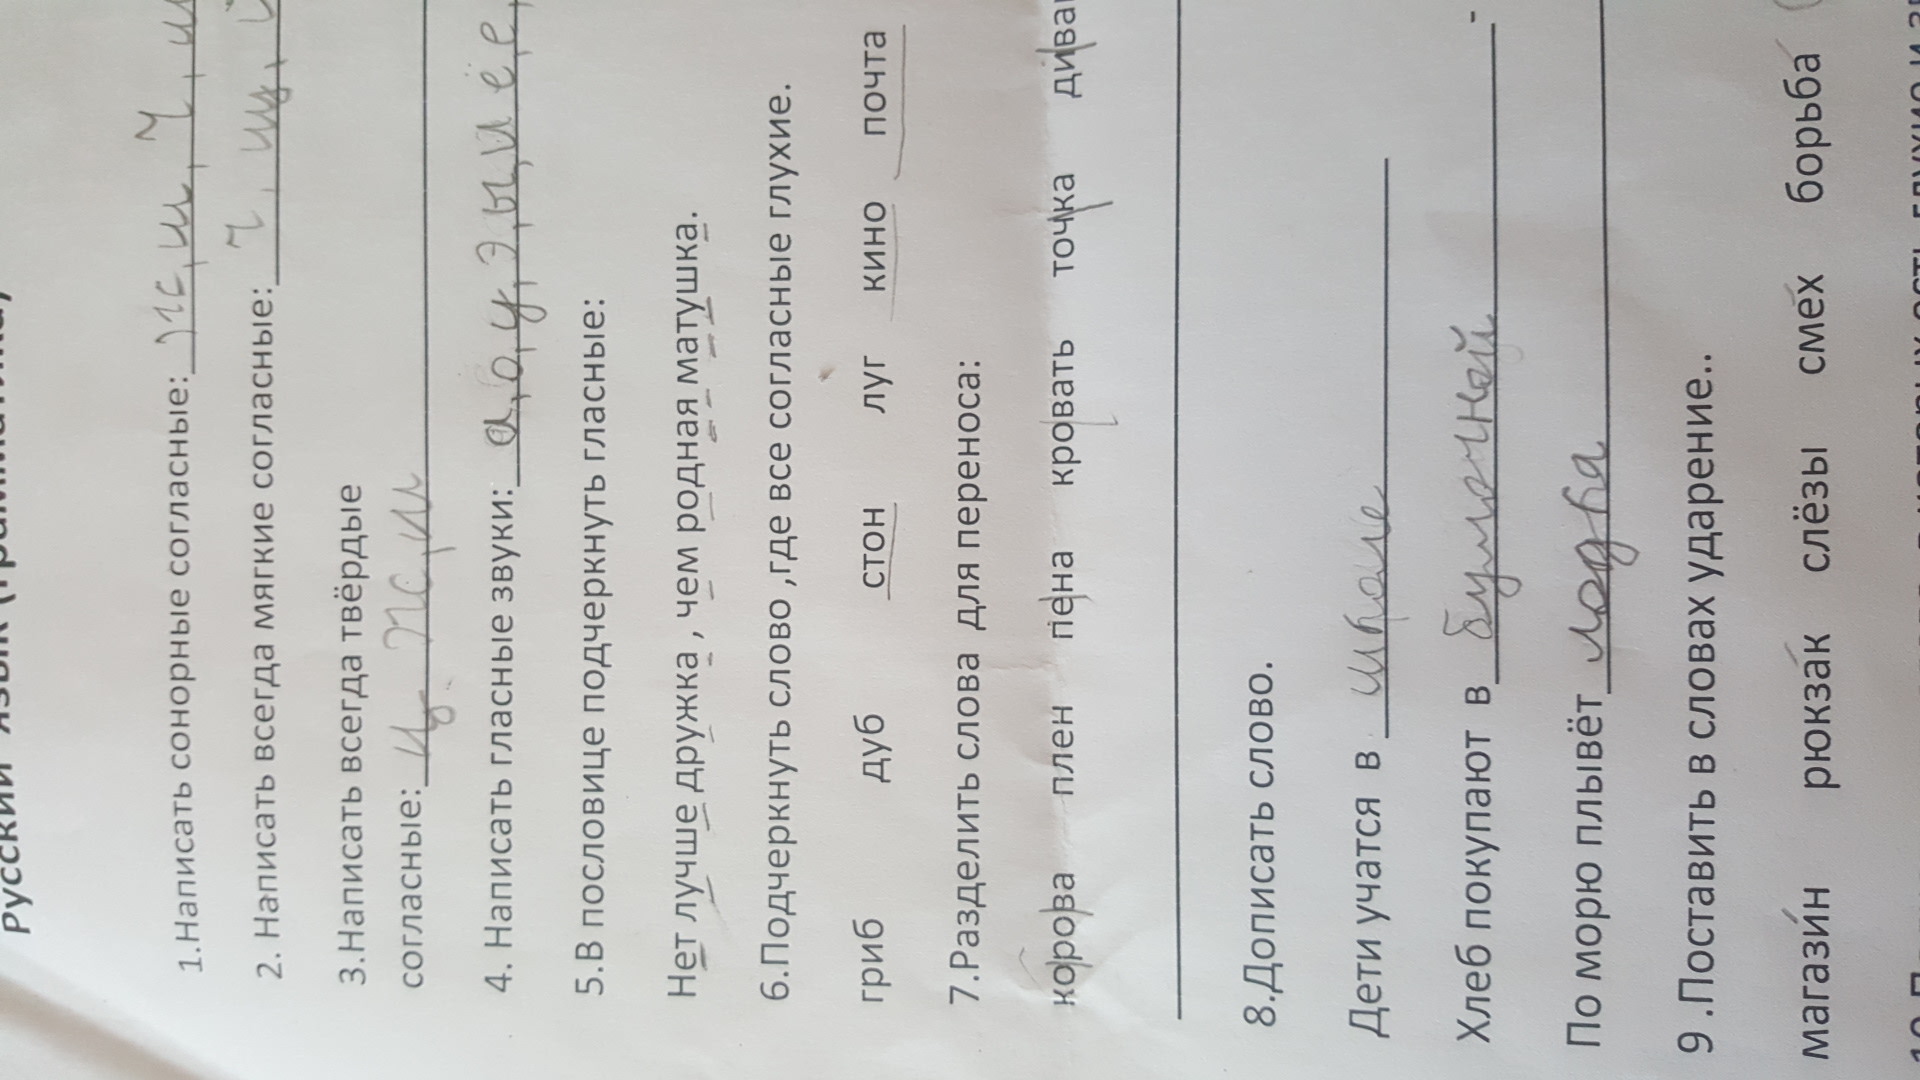 Русский язык (грамматика)
1.Написать сонорные согласные: ж, ш, ч, щ
2. Написать всегда мягкие согласные: ч, щ, й
3.Написать всегда твёрдые
согласные: ц, ж, ш
4. Написать гласные звуки: а, о, у, э, ы, и ё, е,
5.В пословице подчеркнуть гласные:
Нет лучше дружка , чем родная матушка.
6.Подчеркнуть слово ,где все согласные глухие.
гриб дуб стон луг кино почта
7.Разделить слова для переноса:
корова плен пена кровать точка диван
8.Дописать слово.
Дети учатся в школе
Хлеб покупают в булочной
По морю плывёт лодка
9 .Поставить в словах ударение..
магази́н рюкза́к слёзы сме́х борьба́